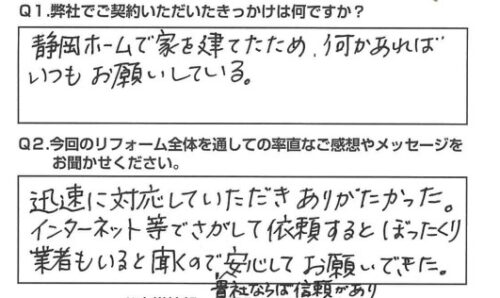 Q1.弊社でご契約いただいたきっかけは何ですか？
静岡ホームで家を建てたため、何かあれば
いつも お願いしている。
Q2.今回のリフォーム全体を通しての率直なご感想やメッセージを
お聞かせください。
迅速に対応していただき ありがたかった。
インターネット等でさがして依頼すると ぼったくり
業者もいると聞くので、安心して お願いできた。
貴社ならば信頼があり